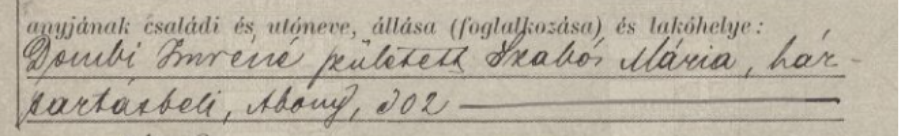 anyjának családi és utóneve, állása (foglalkozása) és lakóhelye:
Dombi Imréné született Szabó Mária, ház-
tartásbeli, Abony, 302